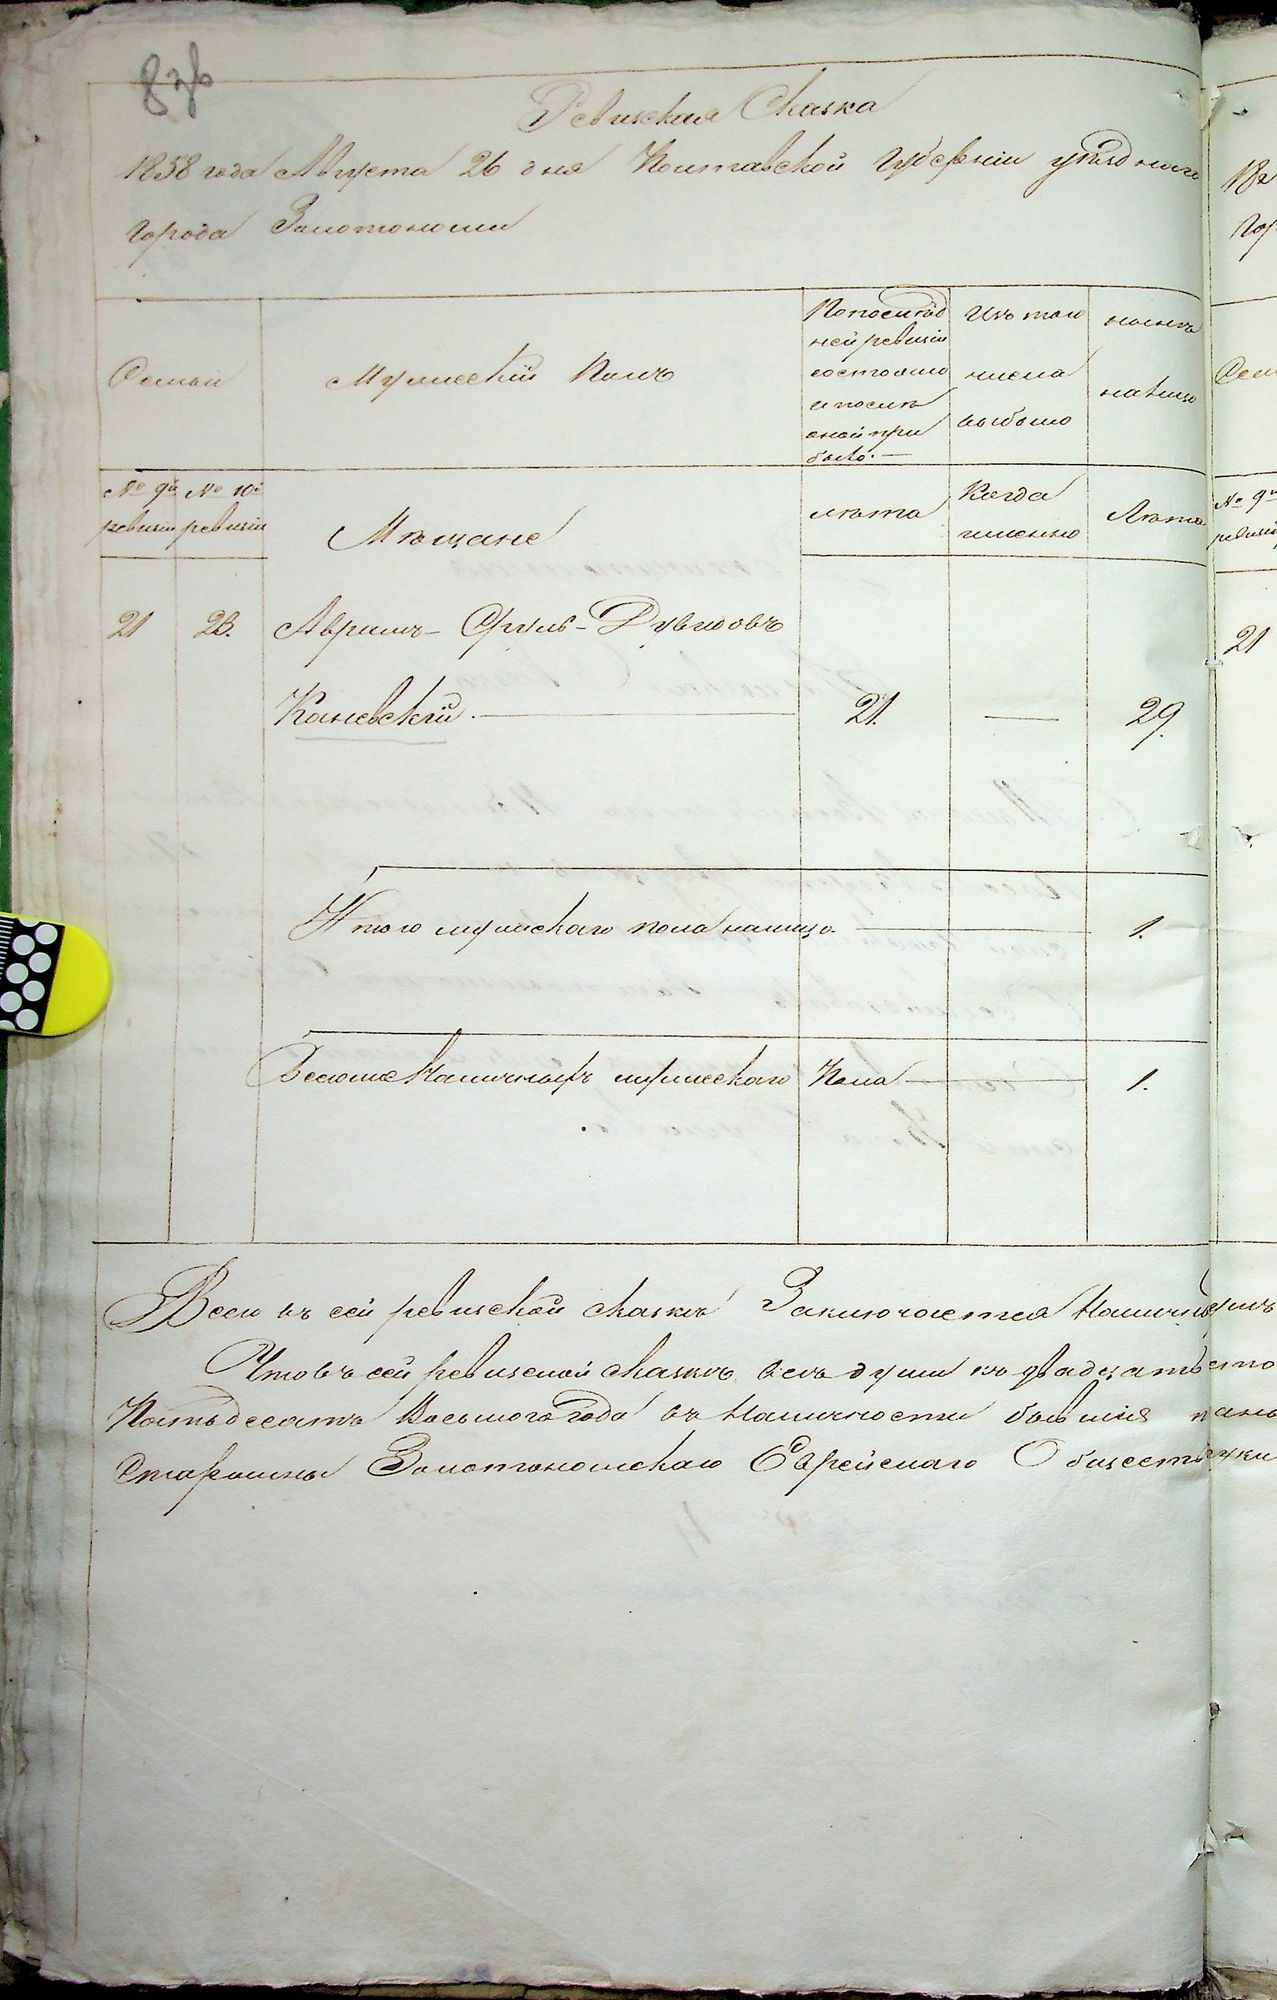 Ревизская Сказка
1858 года Августа 26 дня Полтавской Губерніи уѣзднаго
города Золотоноши
Семьи
Мужескій Полъ
По послѣд
ней ревизіи
состояло
и послѣ
оной при
было.
Изъ того
числа
выбыло
нынѣ
на лицо
№ 9й
ревизіи
№ 10й
ревизіи
Мѣщане
лѣта
Когда
именно
Лѣта
21 23. Аврумъ - Сруль - Дувидовъ
Каневскій. 21. — 29.
Итого мужескаго пола налицо. 1.
Всего наличныхъ мужескаго Пола 1.
Всего въ сей ревизской сказкѣ Заключается Налични
Что въ сей ревизской сказкѣ всѣ души къ двадцать
Пятьдесятъ Восьмого Года въ Наличности бывшія
Старшины Золотоношскаго Еврейскаго Обществ
Гор
№ 9й
21